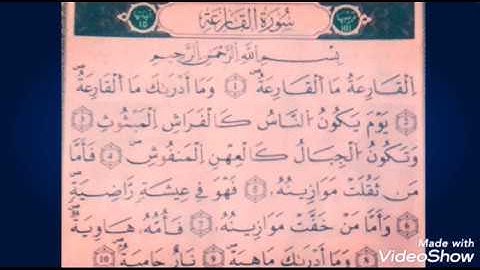 سُورَةُ الْقَارِعَةِ
بِسْمِ اللَّهِ الرَّحْمَنِ الرَّحِيمِ
اَلْقَارِعَةُ مَا الْقَارِعَةُ ۝١ وَمَا أَدْرَىٰكَ مَا الْقَارِعَةُ
۝٢ يَوْمَ يَكُونُ النَّاسُ كَالْفَرَاشِ الْمَبْثُوثِ ۝٣
وَتَكُونُ الْجِبَالُ كَالْعِهْنِ الْمَنْفُوشِ ۝٤ فَأَمَّا
مَنْ ثَقُلَتْ مَوَازِينُهُ ۝٥ فَهُوَ فِي عِيشَةٍ رَاضِيَةٍ
۝٦ وَأَمَّا مَنْ خَفَّتْ مَوَازِينُهُ ۝٧ فَأُمُّهُ هَاوِيَةٌ
۝٨ وَمَا أَدْرَىٰكَ مَاهِيَهْ ۝٩ نَارٌ حَامِيَةٌ ۝١٠
Made with
VideoShow